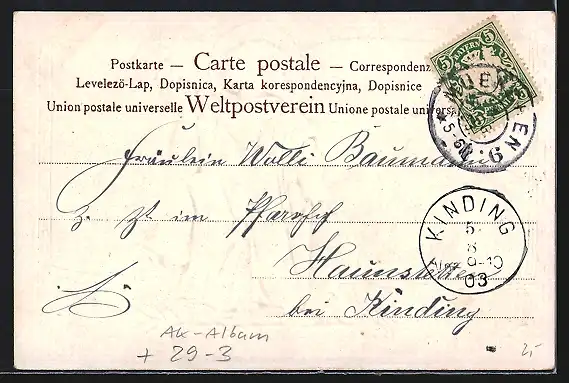 Postkarte — Carte postale — Correspondenz
Levelező-Lap, Dopisnica, Karta korespondencyjna, Dopisnice
Union postale universelle Weltpostverein Unione postale univers
5 BAYERN 5
EN
5-6
6
Fräulein Walli Bauman
z. Zt im Pfarrhof
KINDING
5
8
9-10
03
Haunstetten
bei Kinding
AK-Album
+ 29-3
25